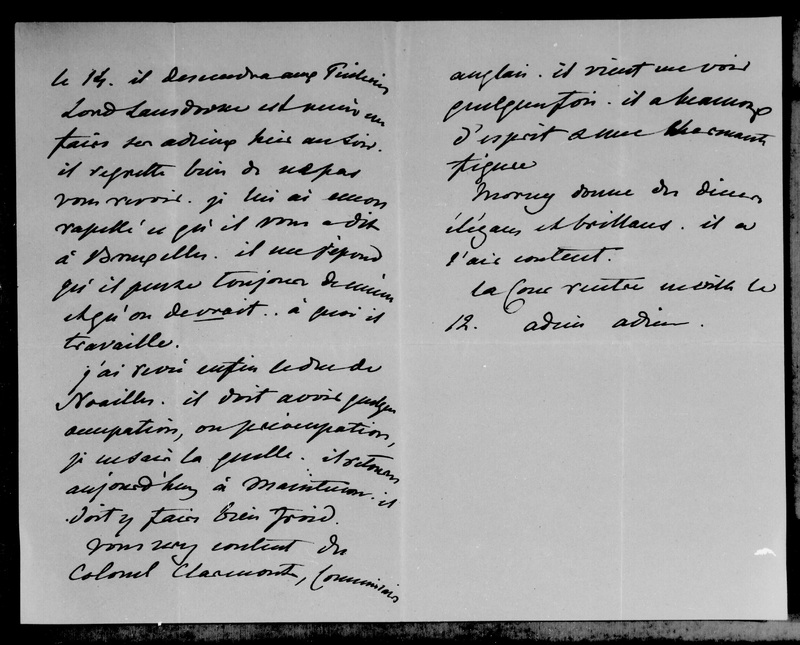 le 14. il descendra aux Tuileries
Lord Lansdowne est venu me
faire ses adieux hier au soir.
il regrette bien de ne pas
vous revoir. je lui ai encore
rapellé ce qu'il vous a dit
à Bruxelles. il me répond
qu'il pense toujours de même
et qu'on devrait.. à quoi il
travaille.
j'ai revu enfin le duc de
Noailles. il doit avoir quelque
occupation, ou préoccupation,
je ne sais la quelle. il retourne
aujourd'huy à Maintenon. il
doit y faire bien froid.
vous serez content du
Colonel Claremont, Commissaire
anglais. il vient me voir
quelquefois. il a beaucoup
d'esprit & une charmante
figure
Morny donne des diners
élégans et brillans. il a
l'air content.
la Cour rentre en ville le
12. adieu adieu.